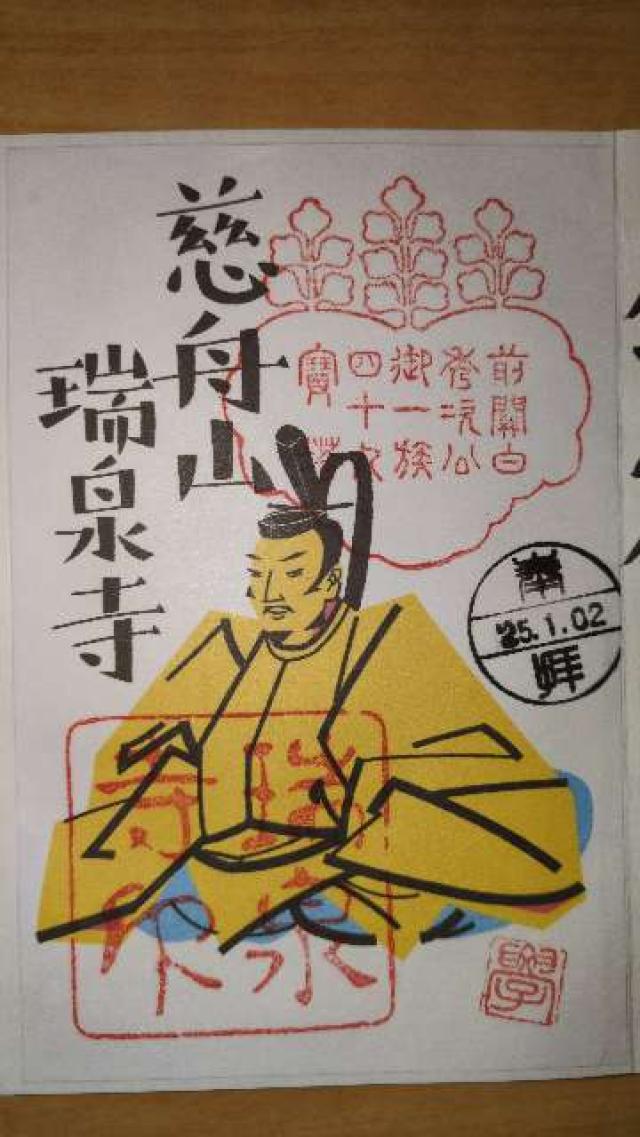 前關白
秀次公
御一族
四十
寶
慈舟山
瑞泉寺
奉
'25.1.02
拝
瑞泉
寺印
學